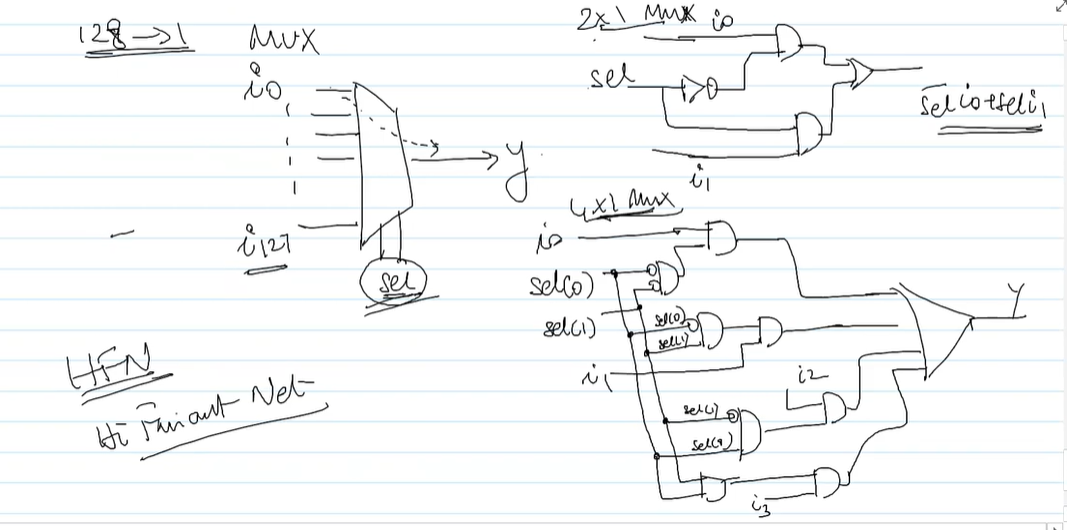 128 → 1 MUX
i0
i127
sel
y
HFN
Hi Fanout Net
2x1 Mux
i0
sel
i1
sel i0 + sel i1
4x1 Mux
i0
sel(0)
sel(1)
sel(0)
sel(1)
i1
i2
sel(1)
i3
Y